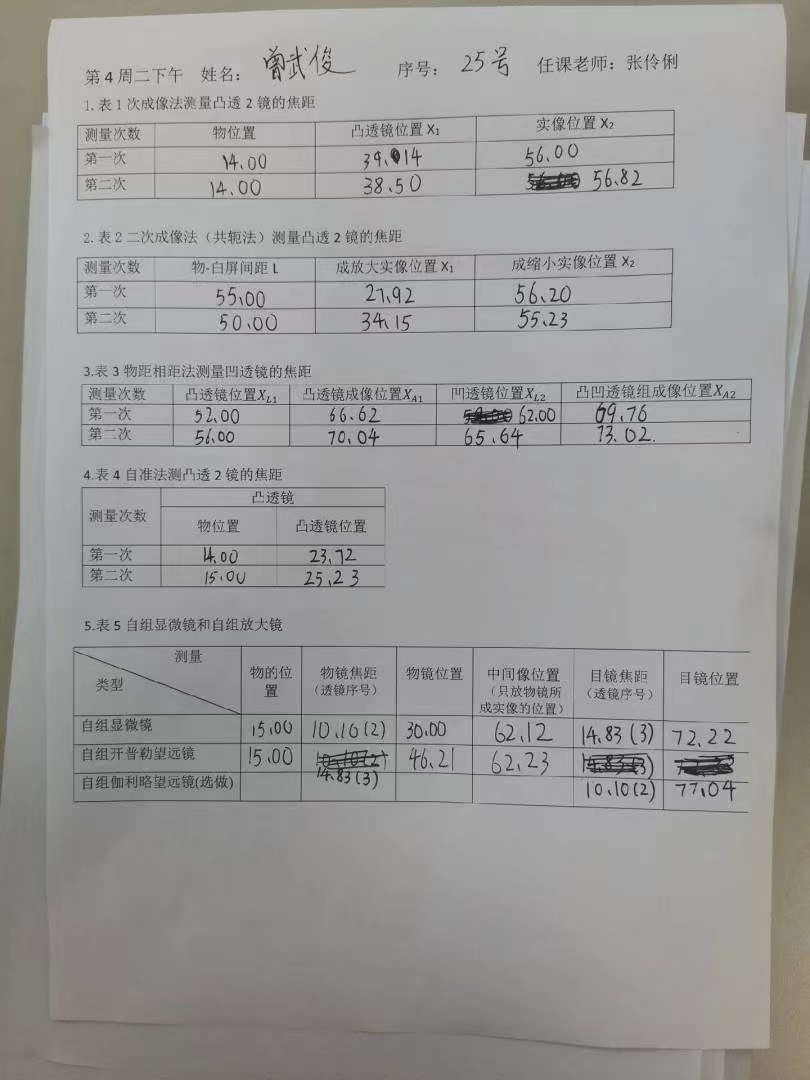 第 4 周二下午 姓名： 曾武俊 序号： 25号 任课老师：张伶俐
1.表 1 次成像法测量凸透 2 镜的焦距
测量次数 物位置 凸透镜位置 X₁ 实像位置 X₂
第一次 14.00 39.14 56.00
第二次 14.00 38.50 56.82
2.表 2 二次成像法（共轭法）测量凸透 2 镜的焦距
测量次数 物-白屏间距 L 成放大实像位置 X₁ 成缩小实像位置 X₂
第一次 55.00 27.92 56.20
第二次 50.00 34.15 55.23
3.表 3 物距相距法测量凹透镜的焦距
测量次数 凸透镜位置X_L1 凸透镜成像位置X_A1 凹透镜位置X_L2 凸凹透镜组成像位置X_A2
第一次 52.00 66.62 62.00 69.76
第二次 56.00 70.04 65.64 73.02.
4.表 4 自准法测凸透 2 镜的焦距
测量次数 凸透镜
物位置 凸透镜位置
第一次 14.00 23.72
第二次 15.00 25.23
5.表 5 自组显微镜和自组放大镜
测量
类型 物的位置 物镜焦距（透镜序号） 物镜位置 中间像位置（只放物镜所成实像的位置） 目镜焦距（透镜序号） 目镜位置
自组显微镜 15.00 10.10(2) 30.00 62.12 14.83(3) 72.22
自组开普勒望远镜 15.00 14.83(3) 46.21 62.23 10.10(2) 77.04
自组伽利略望远镜(选做)